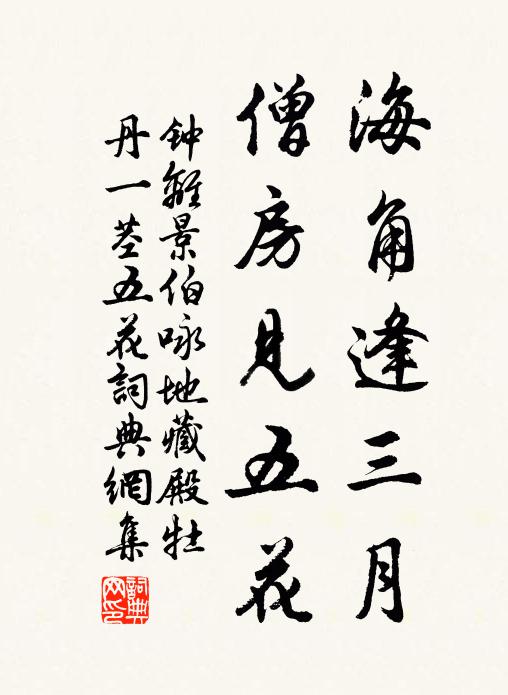 海角逢三月
僧房見五花
钟離景伯咏地藏殿牡
丹一莖五花詞典網集
詞典网印